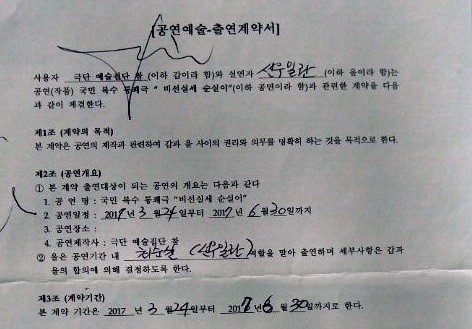 [공연예술-출연계약서]
사용자 극단 예술집단 참 (이하 갑이라 함)와 실연자 선우일란 (이하 을이라 함)는
공연(작품) 국민 복수 통쾌극 " 비선실세 순실이"(이하 공연이라 함)과 관련한 계약을 다음
과 같이 체결한다.
제1조 (계약의 목적)
본 계약은 공연의 제작과 관련하여 갑과 을 사이의 권리와 의무를 명확히 하는 것을 목적으로 한다.
제2조 (공연개요)
① 본 계약 출연대상이 되는 공연의 개요는 다음과 같다
1. 공 연 명 : 국민 복수 통쾌극 "비선실세 순실이"
2. 공연일정 : 2017년 3월 24일부터 2017년 6월 30일까지
3. 공연장소 :
4. 공연제작사 : 극단 예술집단 참
② 을은 공연기간 내 최순실 (선우일란) 역할을 맡아 출연하며 세부사항은 갑과
을의 합의에 의해 결정하도록 한다.
제3조 (계약기간)
본 계약 기간은 2017 년 3 월 24일부터 2017년 6월 30일까지로 한다.